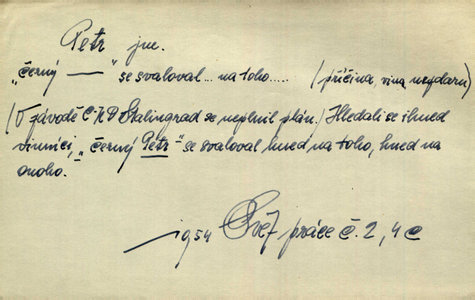 Petr jm.
„černý —" se svaloval... na toho..... (příčina, vina nezdaru)
(V závodě ČKD Stalingrad se neplnil plán.) Hledali se ihned
viníci, „černý Petr" se svaloval hned na toho, hned na
onoho.
1954 Svět práce č. 2, 4c